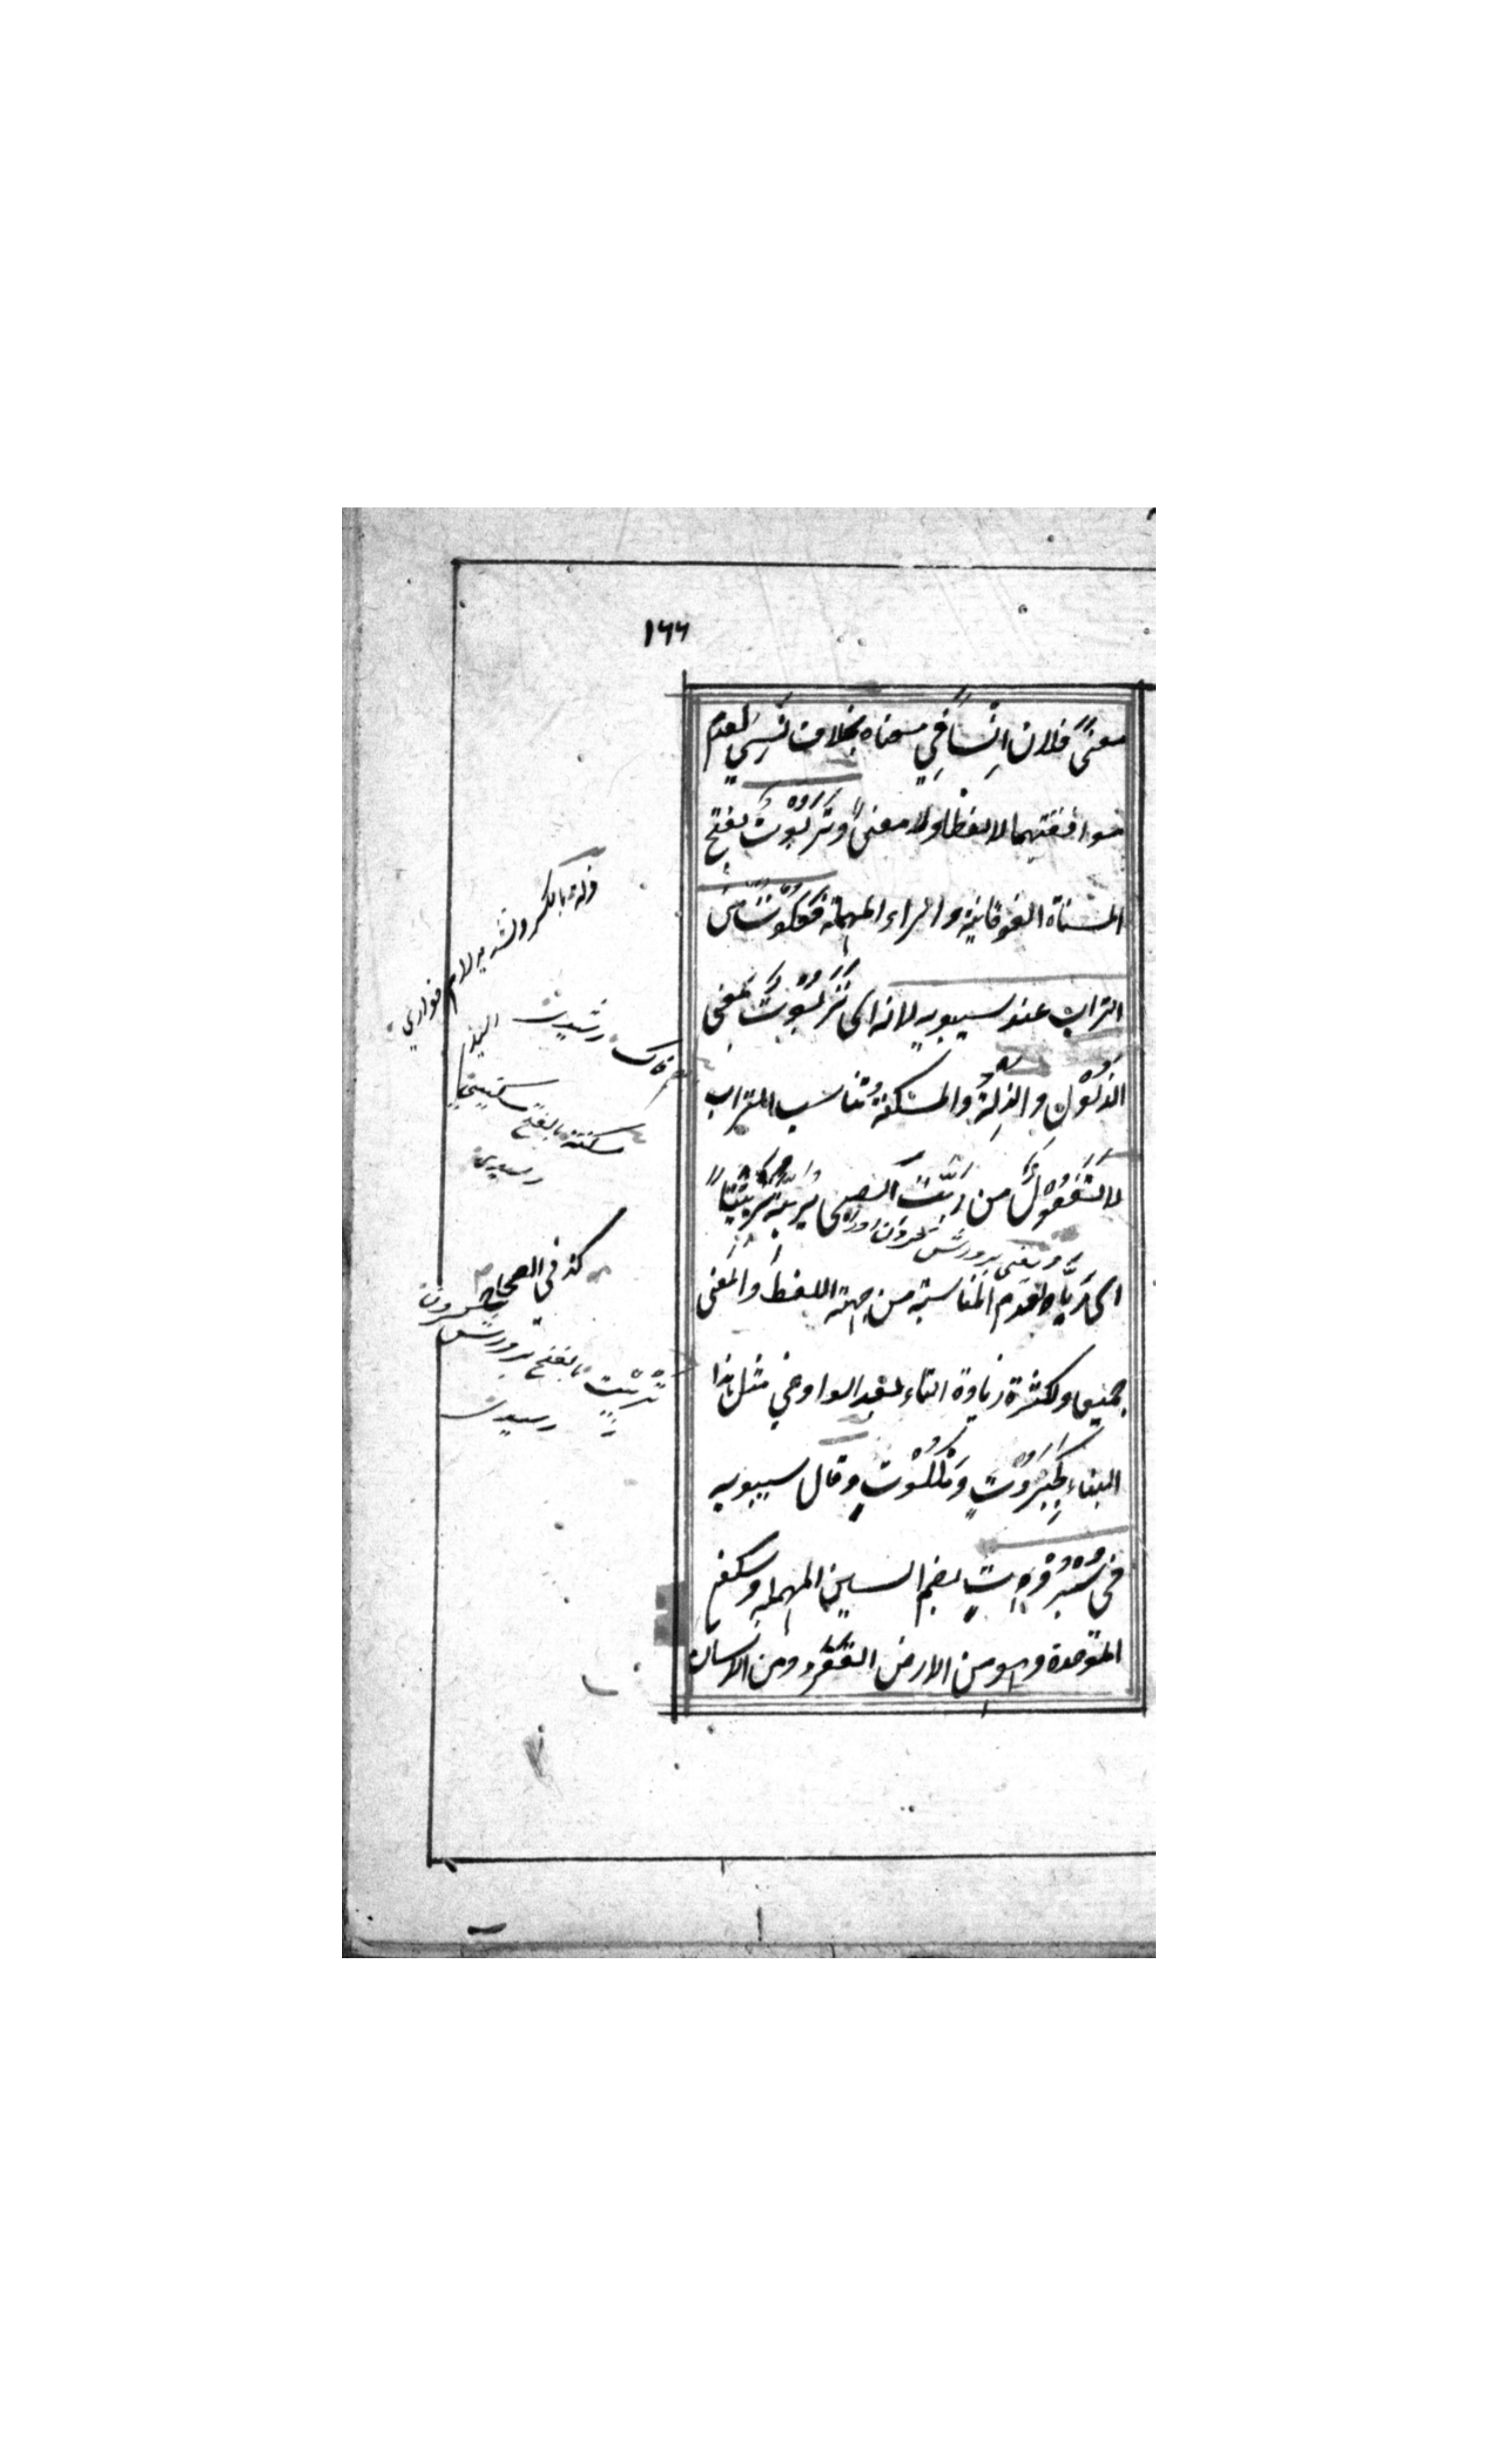 ١٦٦
معنىً فلان اِنْسًا في معناه بخلاف نَسِيَ لعدم
موافقتهما لا لفظا ولا معنىً وتَرَبُوْتٌ بفتح
المثناة الفوقانية والراء المهملة فَعَلُوْتٌ من
التراب عند سيبويه لانه اى تَرَبُوْتٌ بمعنى
الذَّلُوْل والذِلَّةُ والمسكنةُ تناسب التراب
لا تَفَعُوْلٌ من رَبَّتَ الصبى يُرَبِّتُهُ تَرْبِيْتًا
يعنى پرورش كردن اورا
اى رَبَّاه لعدم المناسبة من جهة اللفظ والمعنى
جميعا ولكثرة زيادة التاء بعد الواو في مثل هذا
البناء كجَبَرُوْتٍ ومَلَكُوْتٍ وقال سيبويه
في سُبْرُوْتٍ بضم السين المهملة وسكون
الموحدة وهو من الارض القَفْرُ ومن الانسان
ذلة بالكسر وتشديد لام خوارى
خاك رشيدى
مسكنة بالفتح مسكينى
رشيدى
كذا في الصحاح
تَرْبِيْت بالفتح پرورش كردن
رشيدى